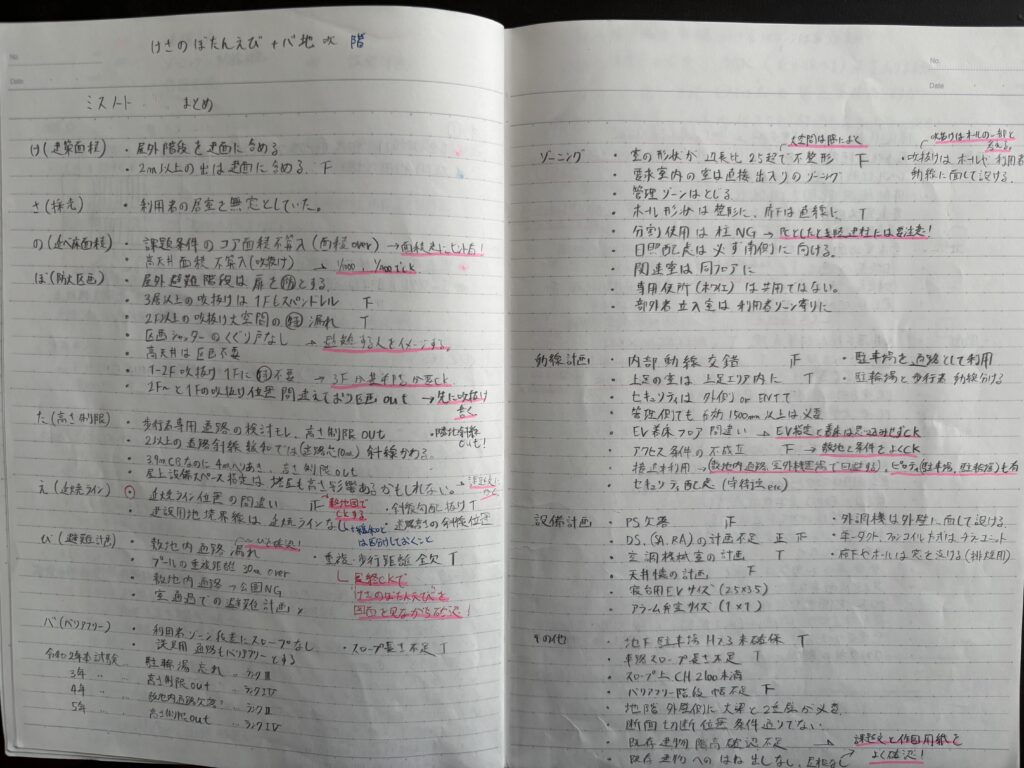 けさのぼたんえび + バ 地 吹 階
No.
Date
ミスノート まとめ
け(建築面積) ・屋外階段を建面に含める。
・2m以上の出は建面に含める。 下
さ(採光) ・利用者の居室を無窓としていた。
の(延べ床面積) ・課題条件のコア面積不算入(面積over) →面積表にヒント有!
・高天井面積 不算入(吹抜け) → 1/1000、1/200でck
ぼ(防火区画) ・屋外避難階段は扉を防とする。
・3層以上の吹抜けは1Fもスパンドレル 下
・2F以上の吹抜け大空間の特漏れ T
・区画シャッターのくぐり戸なし → 避難する人をイメージする。
・高天井は区画不要
・1-2F吹抜け 1Fに特不要
・2F〜と1Fの吹抜け位置間違えており区画out →先に吹抜け書く
た(高さ制限) ・歩行者専用道路の検討モレ、高さ制限out ・隣地斜線out!
・2以上の道路斜線緩和では(道路芯10m)斜線かわる。
・39mCBなのに4mへりあき、高さ制限out
・屋上設備スペース指定は塔屋も高さ影響あるかもしれない。
え(延焼ライン) ・延焼ライン位置の間違い 正→敷地図でckする。 ・斜線勾配抜け T
・建設用地境界線は延焼ラインなし
び(避難計画) ・敷地内通路漏れ ・重複・歩行距離 全欠 T
・プールの重複距離 30m over
・敷地内通路→公園NG
・室通過での避難計画×
けさのぼたんえびを
図面を見ながら確認!
バ(バリアフリー) ・利用者ゾーン段差にスロープなし ・スロープ長さ不足 T
・泳者用通路もバリアフリーとする
令和2年本試験‥ 駐輪場忘れ ‥ランクⅢ
3年 〃 ‥ 高さ制限out ‥ランクⅣ
4年 〃 ‥ 敷地内通路欠落! ‥ランクⅢ
5年 〃 ‥ 高さ制限out ‥ランクⅣ
No.
Date
大空間は階によく 吹抜けはホールの一部と
ゾーニング ・室の形状が辺長比2.5超で不整形 下 ・吹抜けはホールや利用者動線に面して設ける。
・要求室内の室は直接出入りのゾーニング
・管理ゾーンはとじる
・ホール形状は整形に、廊下は直線に T
・分割使用は柱NG
・日照配慮は必ず南側に向ける。
・関連室は同フロアに
・専用便所(ホワイエ)は共用ではない。
・部外者立入室は利用者ゾーン寄りに
動線計画 ・内部動線交錯 正 ・駐車場を通路として利用
・上足の室は上足エリア内に T ・駐輪場と歩行者動線分ける
・セキュリティは外側 or EVTで
・管理側でも有効1500mm以上は必要
・EV着床フロア間違い →EV指定と着床は思い込みせずCK
・アクセス条件の不成立 下 →敷地と条件をよくCK
・セキュリティ配慮(守衛出etc)
設備計画 ・PS欠落 正 ・外調機は外壁に面して設ける。
・DS、(SA、RA)の計画不足 正 下
・空調機械室の計画 T ・廊下やホールは窓を設ける(排煙用)
・天井懐の計画 下
・寝台用EVサイズ(2.5×3.5)
・アラーム弁室サイズ(1×1)
その他 ・地下駐車場 H2.3未確保 T
・車路スロープ長さ不足 T
・スロープ上CH2100未満
・バリアフリー階段 幅不足 下
・地階外壁側に大梁と2重壁が必要
・断面切断位置条件通りでない。
・既存建物階高確認不足 → 課題文と作図用紙をよく確認!
・既存建物へのはね出しなし